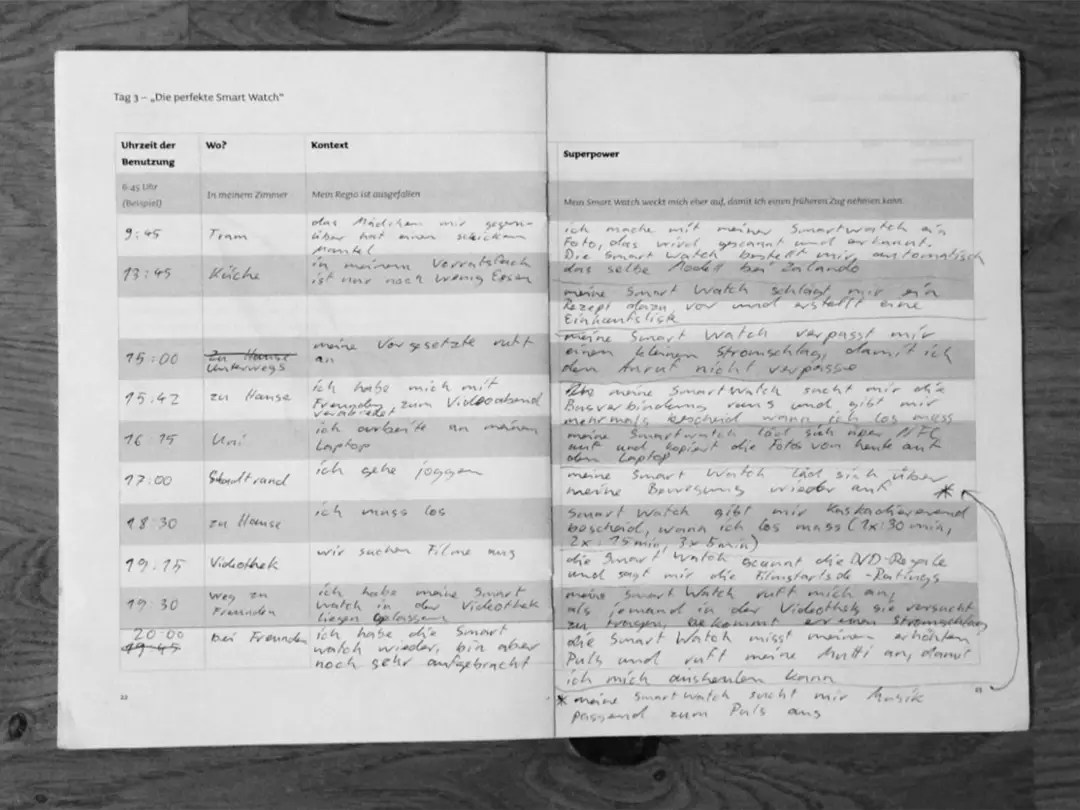 Tag 3 – „Die perfekte Smart Watch"
Uhrzeit der Benutzung
Wo?
Kontext
Superpower
6:45 Uhr
(Beispiel)
In meinem Zimmer
Mein Regio ist ausgefallen
Mein Smart Watch weckt mich eher auf, damit ich einen früheren Zug nehmen kann.
9:45
Tram
das Mädchen mir gegen-
über hat einen schicken
Mantel
ich mache mit meiner Smartwatch ein
Foto, das wird gescannt und erkannt.
Die Smart Watch bestellt mir automatisch
das selbe Modell bei Zalando
13:45
Küche
in meinem Vorratsfach
ist nur noch wenig Essen
meine Smart Watch schlägt mir ein
Rezept dazu vor und erstellt eine
Einkaufsliste
15:00
Zu Hause
Unterwegs
meine Vorgesetzte ruft
an
meine Smart Watch verpasst mir
einen kleinen Stromschlag, damit ich
den Anruf nicht verpasse
15:42
zu Hause
ich habe mich mit
Freunden zum Videoabend
verabredet
meine Smartwatch sucht mir die
Busverbindung raus und gibt mir
mehrmals bescheid wann ich los muss
16:15
Uni
ich arbeite an meinem
Laptop
meine Smartwatch läd sich über NFC
auf und kopiert die Fotos von heute auf
den Laptop
17:00
Stadtrand
ich gehe joggen
meine Smart Watch läd sich über
meine Bewegung wieder auf *
18:30
zu Hause
ich muss los
Smart Watch gibt mir Kaskadierend
bescheid, wann ich los muss (1x:30 min,
2x:15min, 3x5min)
19:15
Videothek
wir suchen Filme aus
die Smart Watch scannt die DVD-Regale
und sagt mir die Filmstarts.de-Ratings
19:30
weg zu
Freunden
ich habe meine Smart
Watch in der Videothek
liegen gelassen
meine Smart Watch ruft mich an,
als jemand in der Videothek sie versucht
zu tragen, bekommt er einen Stromschlag
20:00
19:45
bei Freunden
ich habe die Smart
watch wieder, bin aber
noch sehr aufgebracht
die Smart Watch misst meinen erhöhten
Puls und ruft meine Mutti an, damit
ich mich ausheulen kann
* meine Smartwatch sucht mir Musik
passend zum Puls aus
22
23